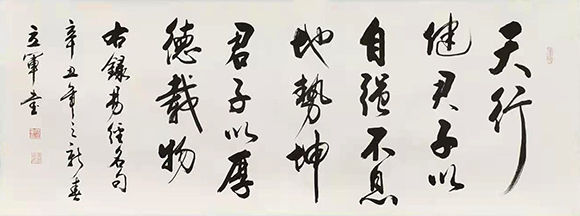 天行
健君子以
自强不息
地势坤
君子以厚
德载物
右錄易经名句
辛丑年之新春
立軍書